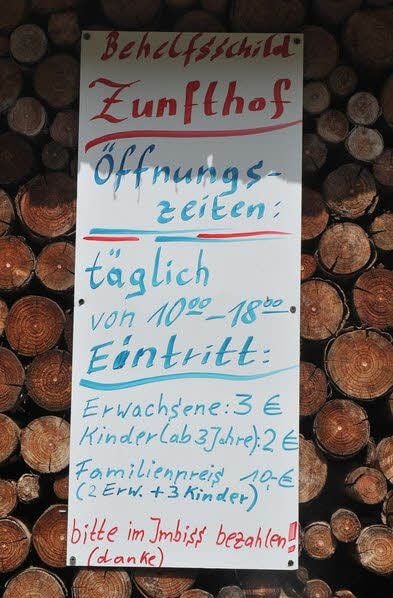 Behelfsschild
Zunfthof
Öffnungs-
zeiten:
täglich
von 10⁰⁰-18⁰⁰
Eintritt:
Erwachsene: 3 €
Kinder (ab 3 Jahre): 2 €
Familienpreis 10,-€
(2 Erw. + 3 Kinder)
bitte im Imbiss bezahlen!
(danke)